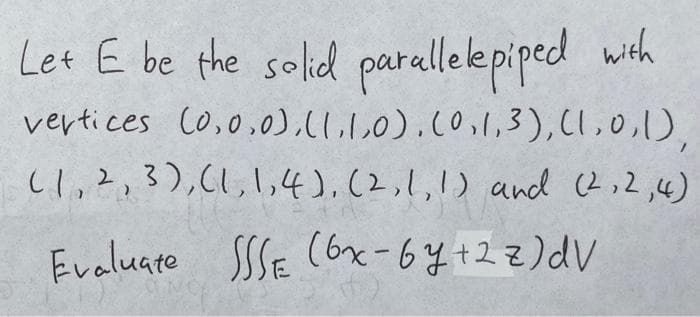 Let E be the solid parallelepiped with
vertices (0,0,0),(1,1,0),(0,1,3),(1,0,1),
(1,2,3),(1,1,4),(2,1,1) and (2,2,4)
Evaluate ∭E (6x-6y+2z)dV